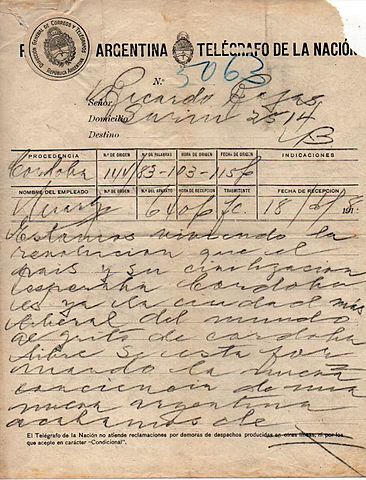 DIRECCIÓN GENERAL DE CORREOS Y TELÉGRAFOS
REPÚBLICA ARGENTINA
ARGENTINA TELÉGRAFO DE LA NACIÓN
N.º 5063
Señor Ricardo Rojas
Domicilio 2514
Destino B
PROCEDENCIA N.º DE ORIGEN N.º DE PALABRAS HORA DE ORIGEN FECHA DE ORIGEN INDICACIONES
Cordoba 83 103 15
NOMBRE DEL EMPLEADO N.º DEL APARATO HORA DE RECEPCION TRAMITENTE FECHA DE RECEPCION
640 18 191 8
Estamos viviendo la
revolucion que el
pais y su civilizacion
esperaba Cordoba
es ya la ciudad mas
liberal del mundo
al grito de cordoba
libre se esta for
mando la nueva
conciencia de una
nueva argentina
acabamos de
El Telégrafo de la Nación no atiende reclamaciones por demoras de despachos producidas en otras líneas, ni por los
que acepte en carácter "Condicional".